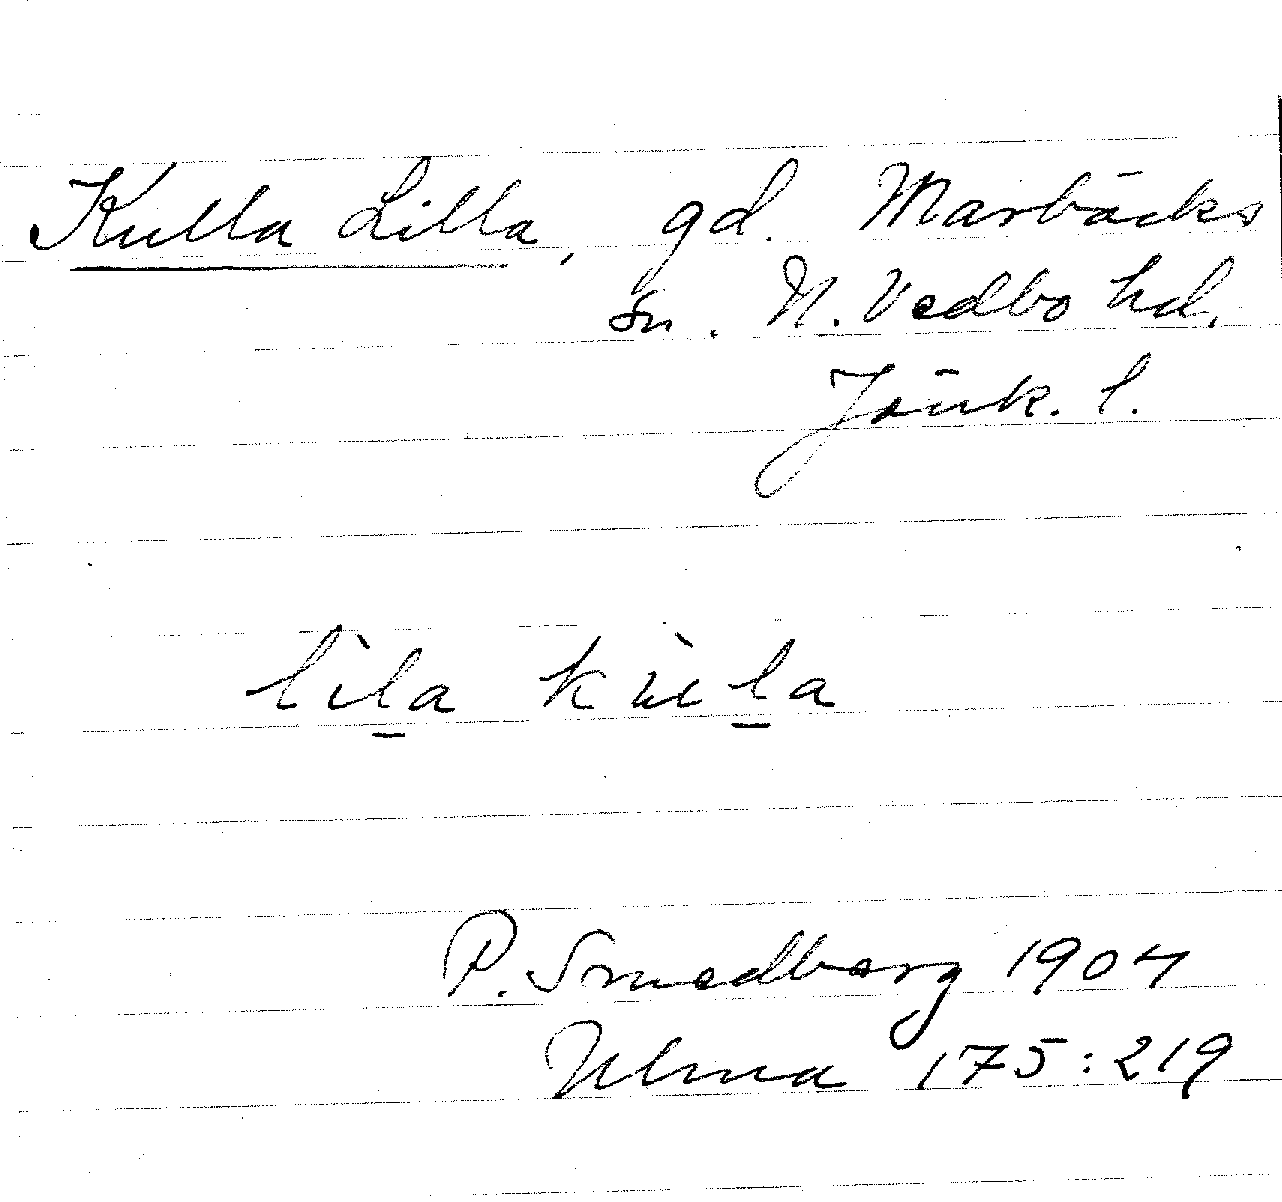 Kulla Lilla, gd. Marbäcks
sn. N. Vedbo hd.
Jönk. l.
lìl̠a kùl̠a
P. Smedberg 1904
Ulma 175:219